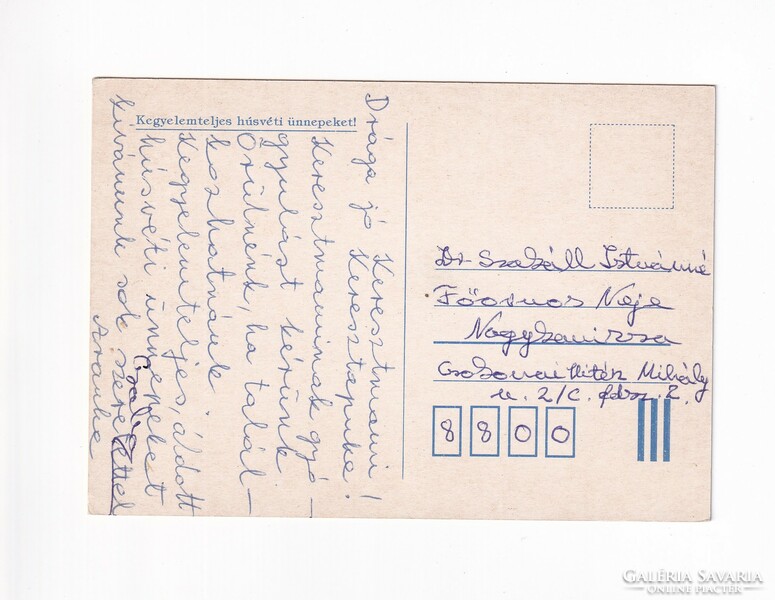 Kegyelemteljes húsvéti ünnepeket!
Drága jó Keresztmami!
Keresztapuka!
Keresztmaminak gyó-
gyulást kérünk
Örülnénk, ha talál-
kozhatnánk
Kegyelemteljes, áldott
húsvéti ünnepeket
kívánunk sok szeretettel
Aranka
Dr Szabáll Istvánné
Főorvos Neje
Nagykanizsa
Csokonai Vitéz Mihály
u. 2/c. fdsz. 2.
8800
GALÉRIA SAVARIA
ONLINE PIACTÉR